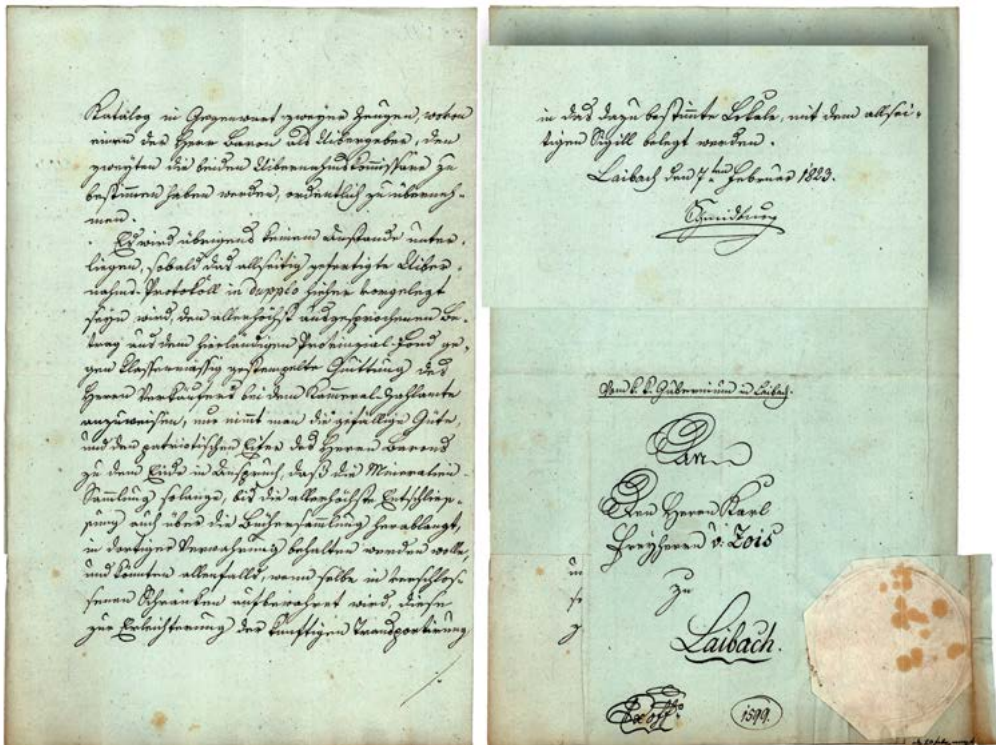 Katalog in Gegenwart zweyer Zeugen, wovon
einen der Herr Baron als Uibergeber, den
zweyten die beiden Uibernahmskommissäre zu
bestimmen haben werden, ordentlich zu überneh-
men.
Es wird übrigens keinem Anstande unter-
liegen, sobald das allseitig gefertigte Uiber-
nahms-Protokoll in dupplo hieher vorgelegt
seyn wird, den allerhöchst ausgesprochenen Be-
trag aus dem hierländigen Provinzial-Fond ge-
gen klassenmässig gestempelte Quittung des
Herrn Verkäufers bei dem Kammeral-Zahlamte
anzuweisen, nur nimmt man die gefällige Güte,
und den patriotischen Eifer des Herrn Barons
zu dem Ende in Anspruch, daß die Mineralien-
Sammlung solange, bis die allerhöchste Entschlies-
sung auch über die Büchersammlung herablangt,
in dortiger Verwahrung behalten werden wolle,
und könnten allenfalls, wenn selbe in verschlos-
senen Schränken aufbewahret wird, diese
zur Erleichterung der künftigen Transportirung
in das dazu bestimmte Lokale, mit dem allsei-
tigen Sigill belegt werden.
Laibach den 7ten Februar 1823.
Schmidburg
Vom k. k. Gubernium in Laibach.
An
Den Herrn Karl
Freyherrn v: Zois
zu
Laibach.
Exoffo.
1599.